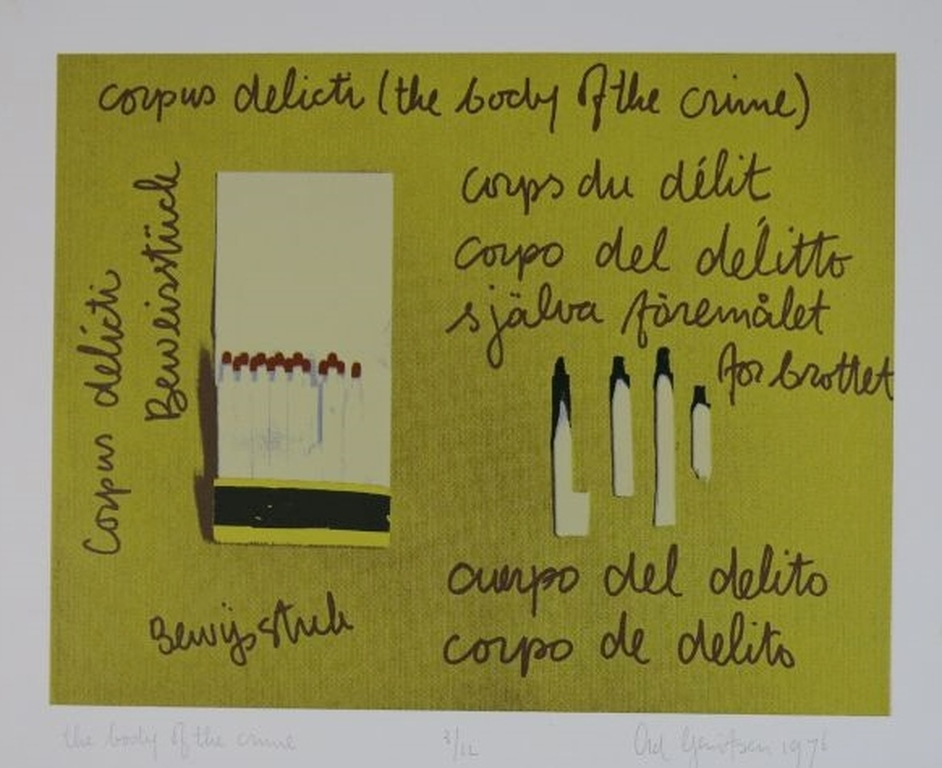 corpus delicti (the body of the crime)
Corpus delicti
Beweisstück
corps du délit
corpo del délitto
själva föremålet
för brottet
cuerpo del delito
corpo de delito
Bewijsstuk
the body of the crime
3/12
1976